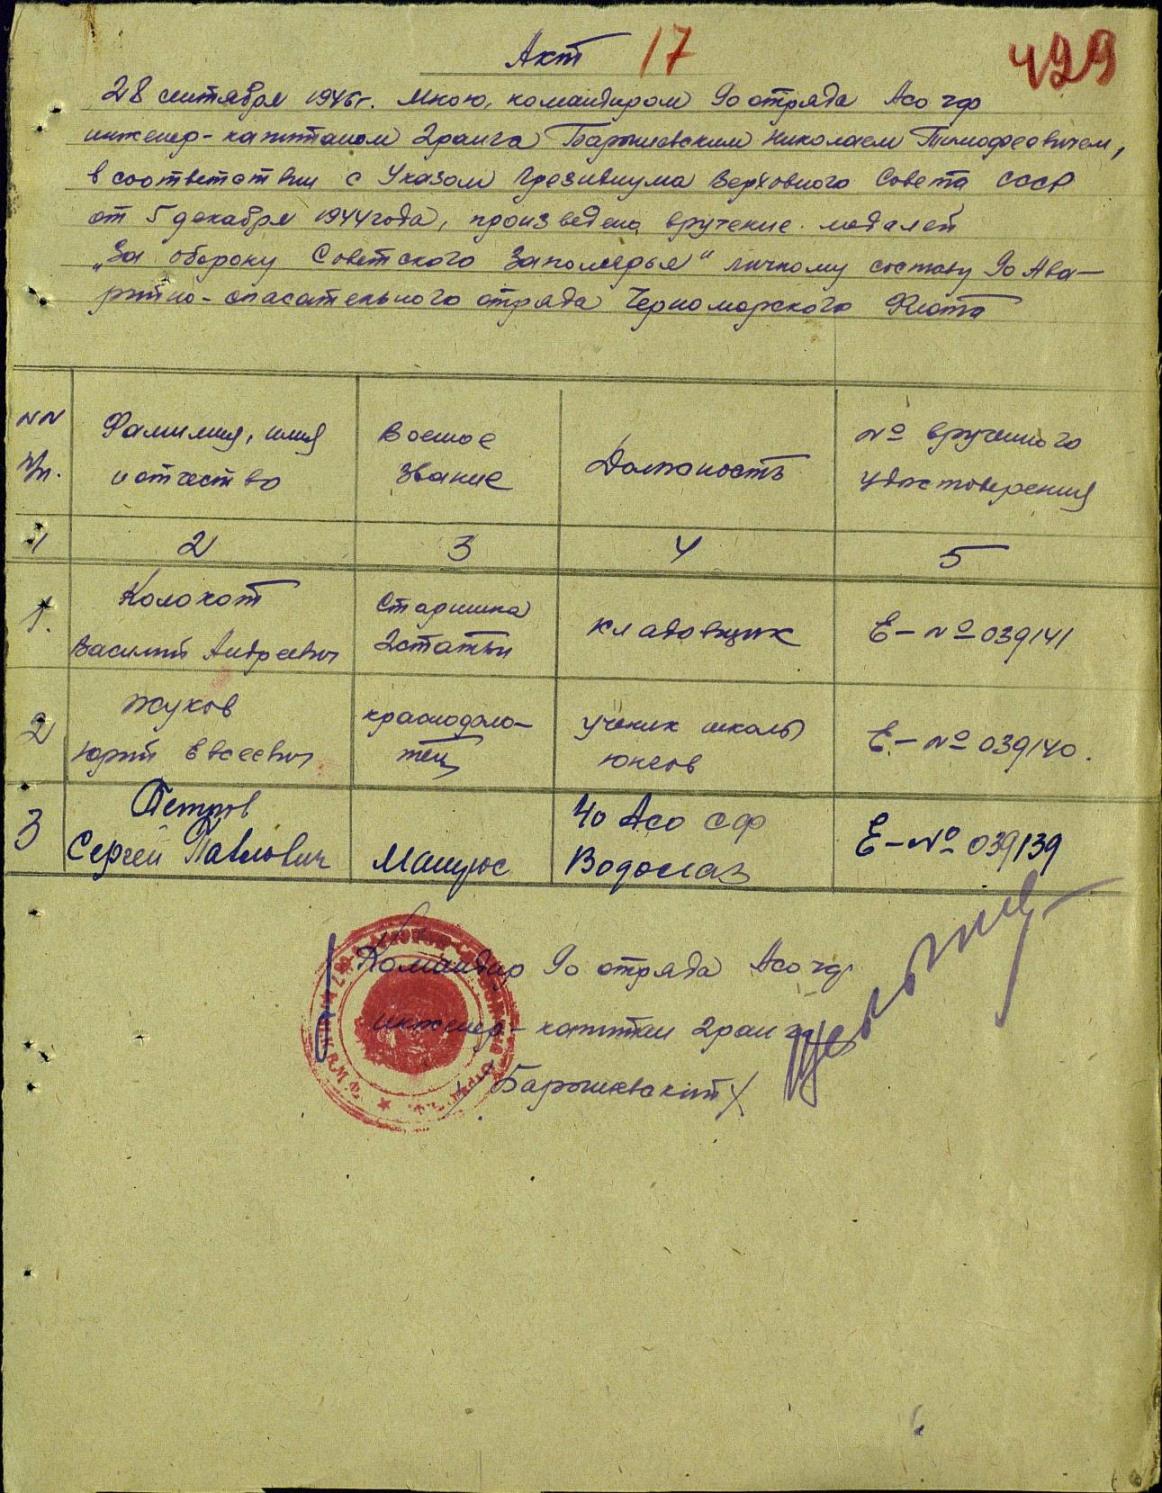 Акт 17
499
28 сентября 1946г. мною, командиром 9о отряда Асо чф
инженер-капитаном 2ранга Барышевским Николаем Тимофеевичем,
в соответствии с Указом Президиума Верховного Совета СССР
от 5 декабря 1944 года, произведено вручение медалей
"За оборону Советского Заполярья" личному составу 9о Ава-
рийно-спасательного отряда Черноморского Флота
NN п/п.
Фамилия, имя и отчество
Военое звание
Должность
№ врученного удостоверения
1 2 3 4 5
1.
Колокот Василий Андреевич
Старшина 2статьи
кладовщик
Е-№ 039141
2
Жуков Юрий Евсеевич
краснофло-тец
ученик школы юнгов
Е-№ 039140.
3
Петров Сергей Павлович
Матрос
40 Асо СФ Водолаз
Е-№ 039139
Командир 9о отряда Асо чф
инженер-капитан 2ранга
/Барышевский/